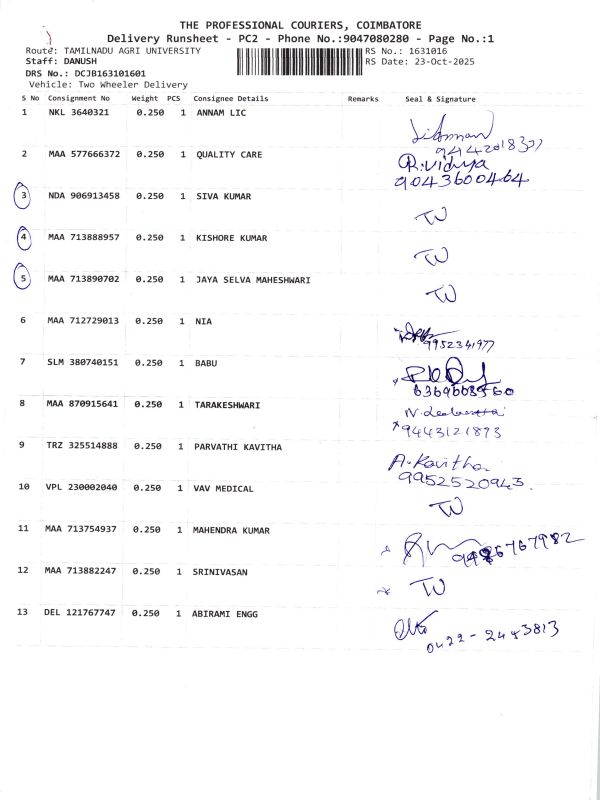 THE PROFESSIONAL COURIERS, COIMBATORE
Delivery Runsheet - PC2 - Phone No.:9047080280 - Page No.:1
Route: TAMILNADU AGRI UNIVERSITY
RS No.: 1631016
Staff: DANUSH
RS Date: 23-Oct-2025
DRS No.: DCJB163101601
Vehicle: Two Wheeler Delivery
S No Consignment No Weight PCS Consignee Details Remarks Seal & Signature
1 NKL 3640321 0.250 1 ANNAM LIC
2 MAA 577666372 0.250 1 QUALITY CARE R.Vidya
9043600464
3 NDA 906913458 0.250 1 SIVA KUMAR TW
4 MAA 713888957 0.250 1 KISHORE KUMAR TW
5 MAA 713890702 0.250 1 JAYA SELVA MAHESHWARI TW
6 MAA 712729013 0.250 1 NIA
9952341977
7 SLM 380740151 0.250 1 BABU
8 MAA 870915641 0.250 1 TARAKESHWARI
9443121893
9 TRZ 325514888 0.250 1 PARVATHI KAVITHA A.Kavitha
9952520943.
10 VPL 230002040 0.250 1 VAV MEDICAL TW
11 MAA 713754937 0.250 1 MAHENDRA KUMAR
12 MAA 713882247 0.250 1 SRINIVASAN TW
13 DEL 121767747 0.250 1 ABIRAMI ENGG
0422 - 2443813